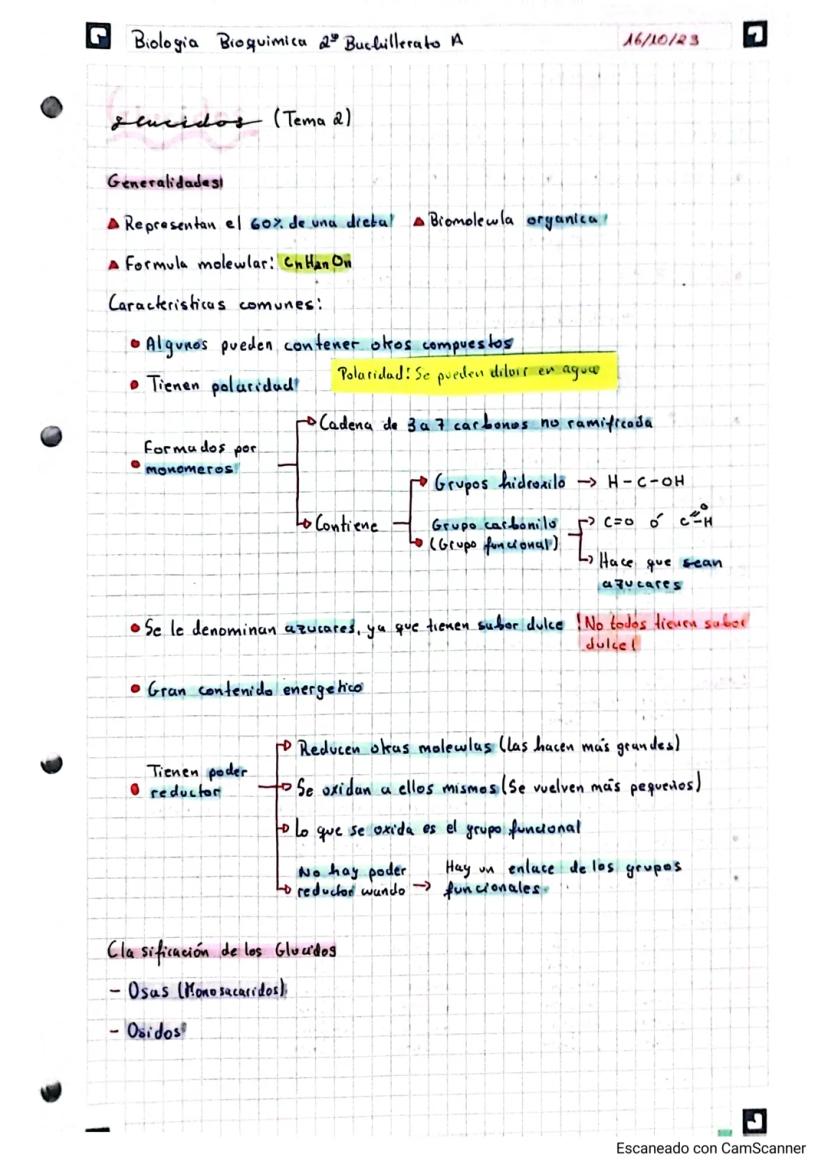 Biologia Bioquimica 2º Buchillerato A
16/10/23
glucidos (Tema 2)
Generalidades!
Representan el 60% de una dieta! Biomolecula organica!
Formula molecular: CnH2nOn
Caracteristicas comunes:
Algunos pueden contener otros compuestos
Tienen polaridad!
Polaridad! Se pueden diluir en agua
Cadena de 3 a 7 carbonos no ramificada
Formados por
monomeros
Contiene
Grupos hidroxilo → H-C-OH
Grupo carbonilo
(Grupo funcional)
C=O ó C=O-H
Hace que sean
azucares
Se le denominan azucares, ya que tienen sabor dulce !No todos tienen sabor
dulce!
Gran contenido energetico
Tienen poder
reductor
Reducen otras moleculas (las hacen más grandes)
Se oxidan a ellos mismos (Se vuelven más pequeños)
Lo que se oxida es el grupo funcional
No hay poder
reductor cuando → Hay un enlace de los grupos
funcionales.
Clasificación de los Glucidos
- Osas (Monosacaridos)
- Osidos
Escaneado con CamScanner